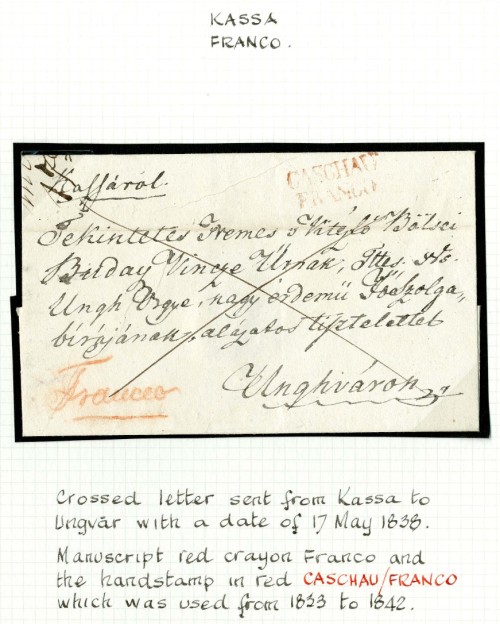 KASSA
FRANCO.
Kassáról.
CASCHAU
FRANCO
Tekintetes Nemes s Vitézlő Bölsei
Buday Vincze Úrnak, Ttes. Ns.
Ungh Vgye nagy érdemű Főszolga„
bírájának, alázatos tisztelettel
Franco
Unghváron
Crossed letter sent from Kassa to
Ungvár with a date of 17 May 1838.
Manuscript red crayon Franco and
the handstamp in red CASCHAU/FRANCO
which was used from 1833 to 1842.